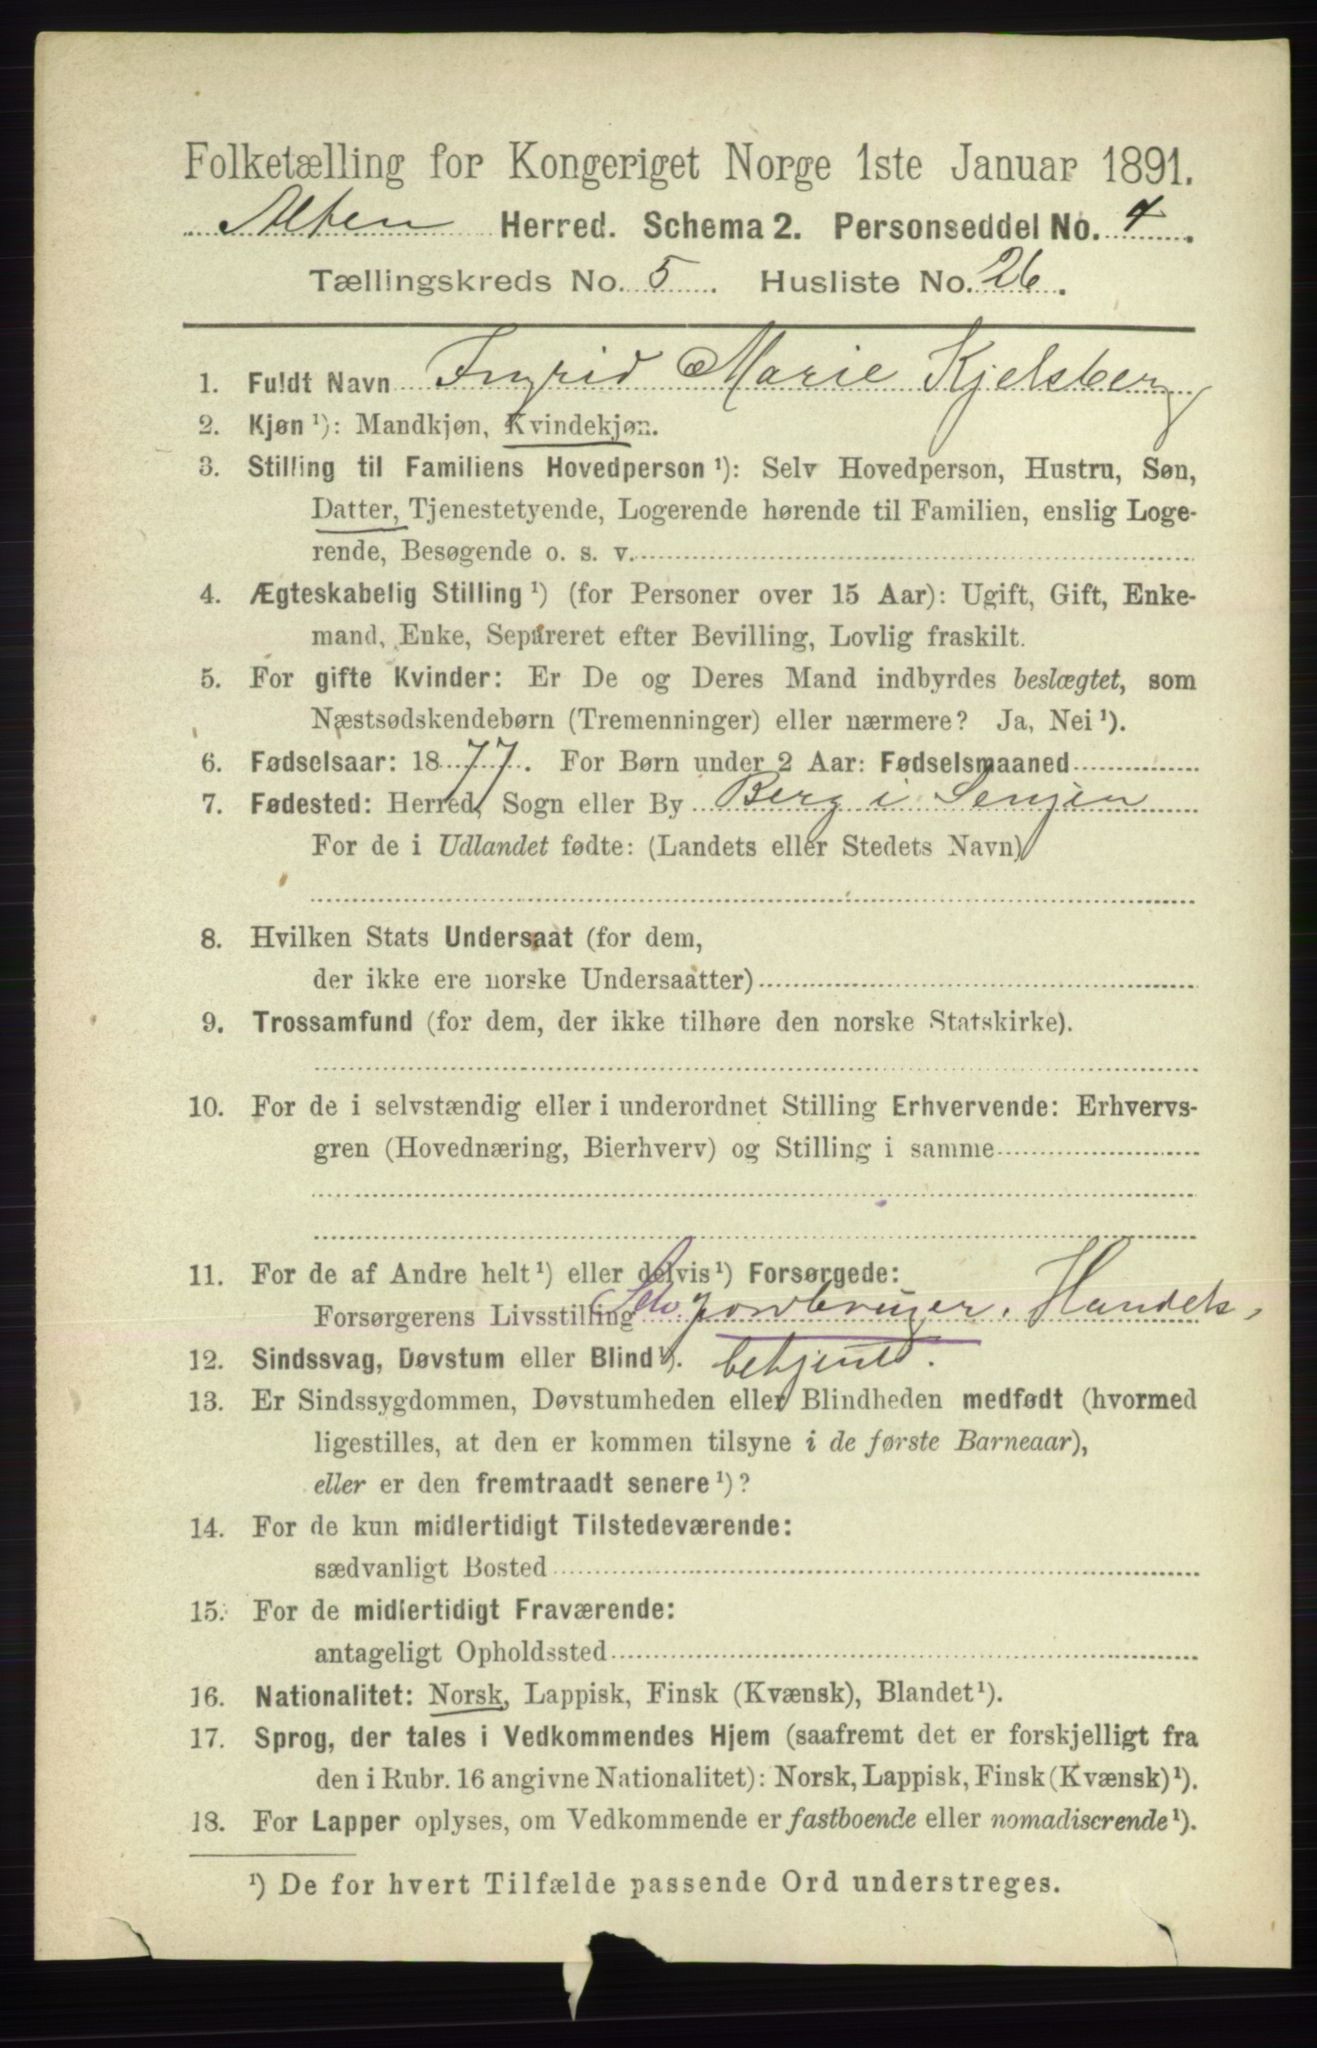 Folketælling for Kongeriget Norge 1ste Januar 1891.
Alten Herred. Schema 2. Personseddel No. 4.
Tællingskreds No. 5. Husliste No. 26.
1. Fuldt Navn Ingrid Marie Kjelsberg
2. Kjøn ¹): Mandkjøn, Kvindekjøn.
3. Stilling til Familiens Hovedperson ¹): Selv Hovedperson, Hustru, Søn,
Datter, Tjenestetyende, Logerende hørende til Familien, enslig Loge-
rende, Besøgende o. s. v.
4. Ægteskabelig Stilling ¹) (for Personer over 15 Aar): Ugift, Gift, Enke-
mand, Enke, Separeret efter Bevilling, Lovlig fraskilt.
5. For gifte Kvinder: Er De og Deres Mand indbyrdes beslægtet, som
Næstsødskendebørn (Tremenninger) eller nærmere? Ja, Nei ¹).
6. Fødselsaar: 1877. For Børn under 2 Aar: Fødselsmaaned
7. Fødested: Herred, Sogn eller By Berg i Senjen
For de i Udlandet fødte: (Landets eller Stedets Navn)
8. Hvilken Stats Undersaat (for dem,
der ikke ere norske Undersaatter)
9. Trossamfund (for dem, der ikke tilhøre den norske Statskirke).
10. For de i selvstændig eller i underordnet Stilling Erhvervende: Erhvervs-
gren (Hovednæring, Bierhverv) og Stilling i samme
11. For de af Andre helt ¹) eller delvis ¹) Forsørgede:
Forsørgerens Livsstilling Selv. Jordbruger. Handels,
12. Sindssvag, Døvstum eller Blind ¹). betjent.
13. Er Sindssygdommen, Døvstumheden eller Blindheden medfødt (hvormed
ligestilles, at den er kommen tilsyne i de første Barneaar),
eller er den fremtraadt senere ¹)?
14. For de kun midlertidigt Tilstedeværende:
sædvanligt Bosted
15. For de midlertidigt Fraværende:
antageligt Opholdssted
16. Nationalitet: Norsk, Lappisk, Finsk (Kvænsk), Blandet ¹).
17. Sprog, der tales i Vedkommendes Hjem (saafremt det er forskjelligt fra
den i Rubr. 16 angivne Nationalitet): Norsk, Lappisk, Finsk (Kvænsk) ¹).
18. For Lapper oplyses, om Vedkommende er fastboende eller nomadiserende ¹).
¹) De for hvert Tilfælde passende Ord understreges.